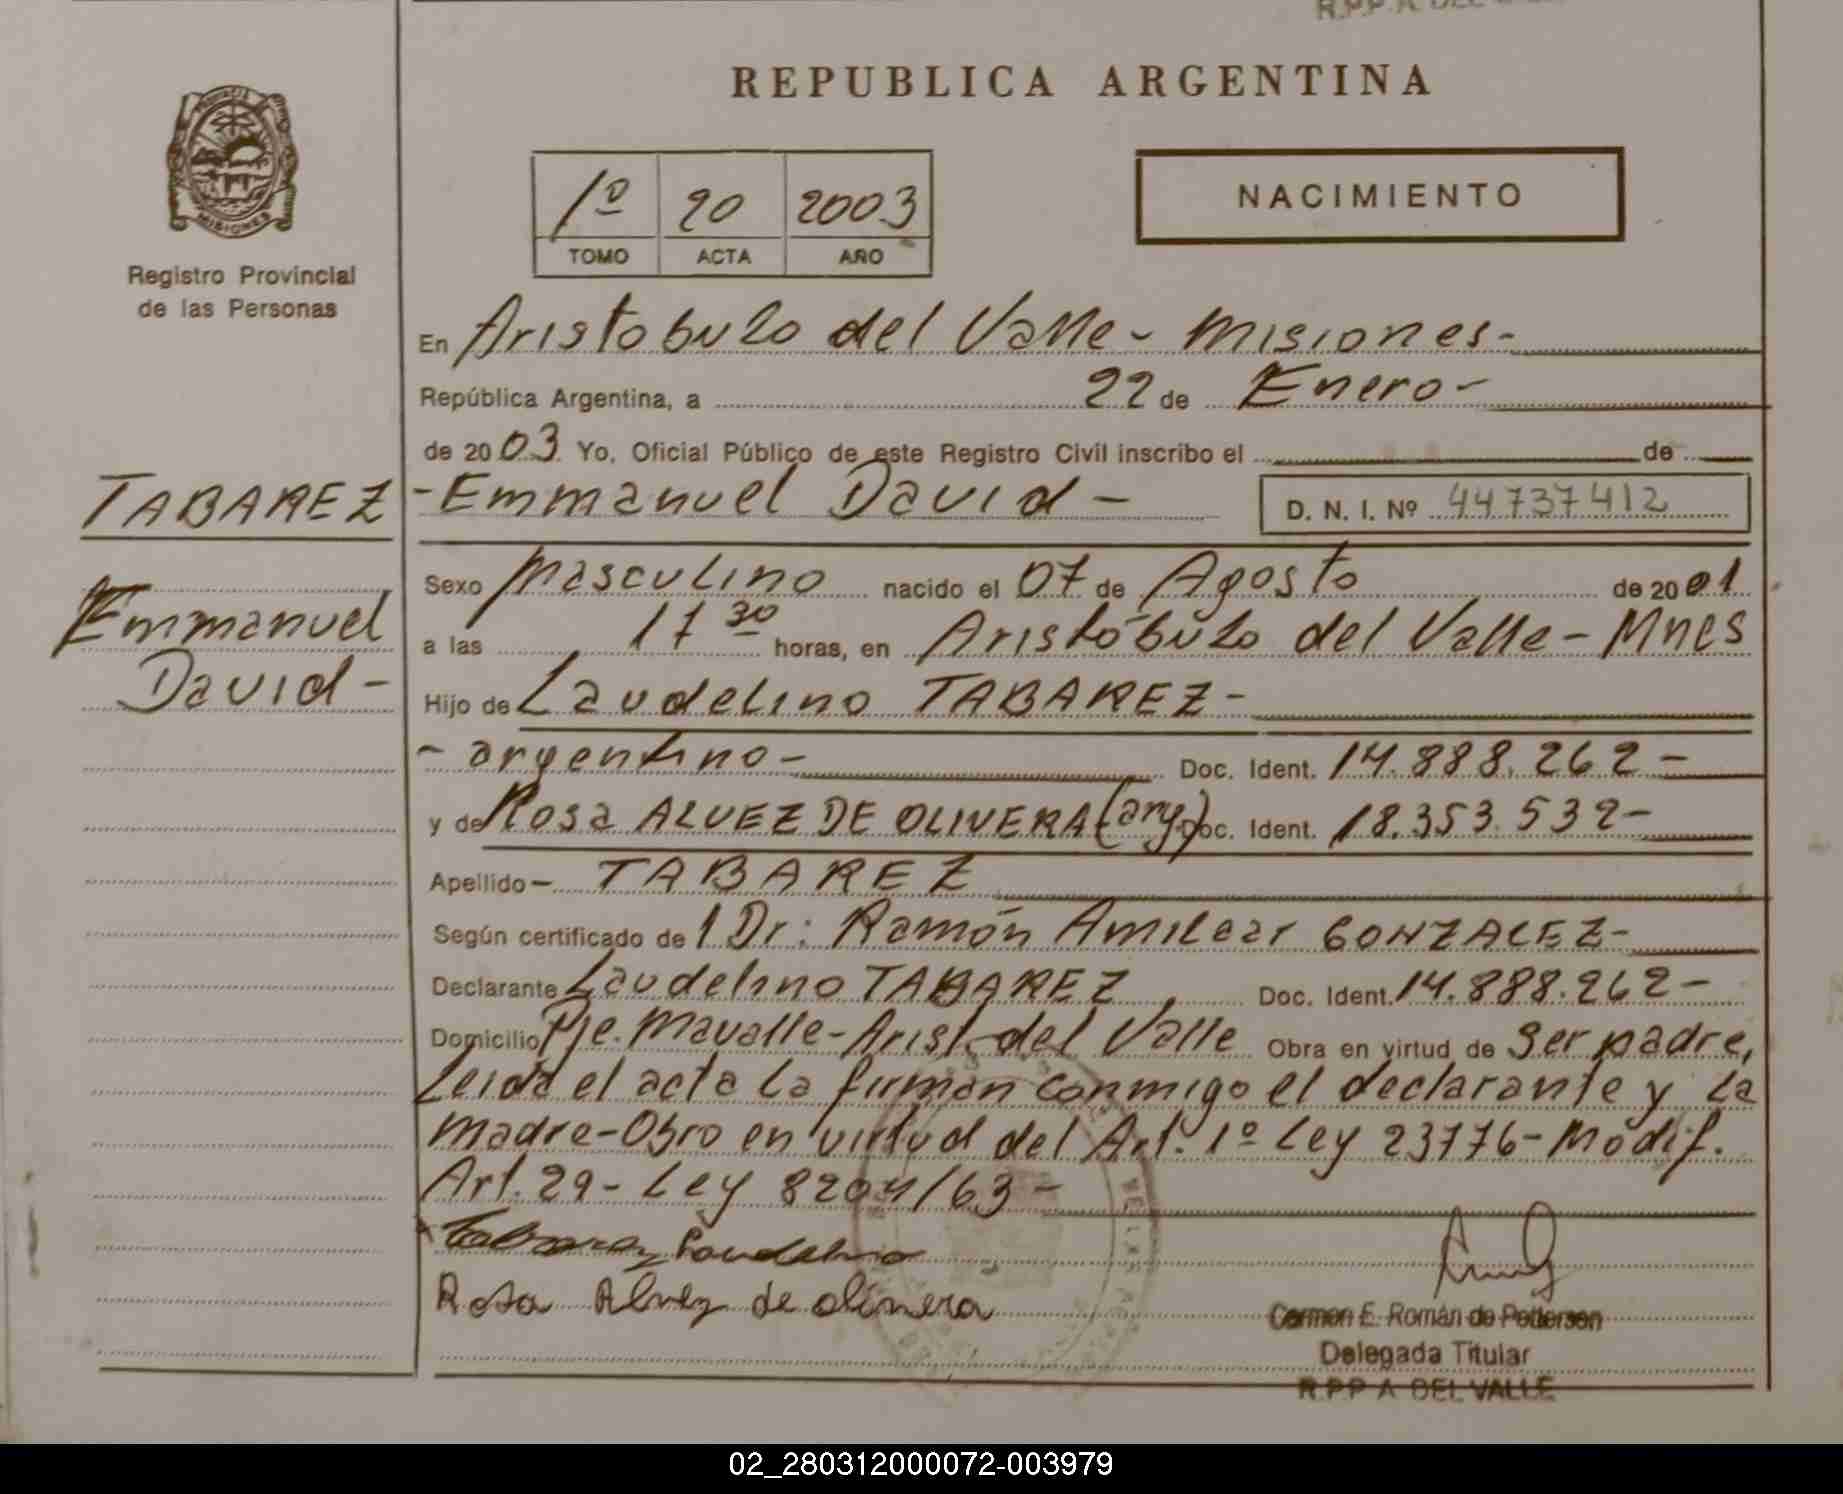 REPUBLICA ARGENTINA
PROVINCIA
MISIONES
Registro Provincial
de las Personas
1º 20 2003
TOMO ACTA AÑO
NACIMIENTO
En Aristobulo del Valle - Misiones -
República Argentina, a 22 de Enero -
de 2003 Yo, Oficial Público de este Registro Civil inscribo el de
TABAREZ
- Emmanuel David -
D. N. I. Nº 44737412
Emmanuel
David -
Sexo masculino nacido el 07 de Agosto de 2001
a las 17 30 horas, en Aristóbulo del Valle - Mnes
Hijo de Laudelino TABAREZ -
- argentino - Doc. Ident. 14.888.262 -
y de Rosa ALVEZ DE OLIVERA (arg) Doc. Ident. 18.353.532 -
Apellido - TABAREZ
Según certificado de 1 Dr: Ramón Amilcar GONZALEZ -
Declarante Laudelino TABAREZ, Doc. Ident. 14.888.262 -
Domicilio Pje. Mavalle - Arist. del Valle Obra en virtud de ser padre,
Leida el acta la firman conmigo el declarante y la
madre - Obro en virtud del Art. 1º Ley 23776 - Modif.
Art. 29 - Ley 8204/63 -
Tabarez Laudelino
Rosa Alvez de olivera
Carmen E. Román de Pettersen
Delegada Titular
R.P.P A DEL VALLE
02_280312000072-003979